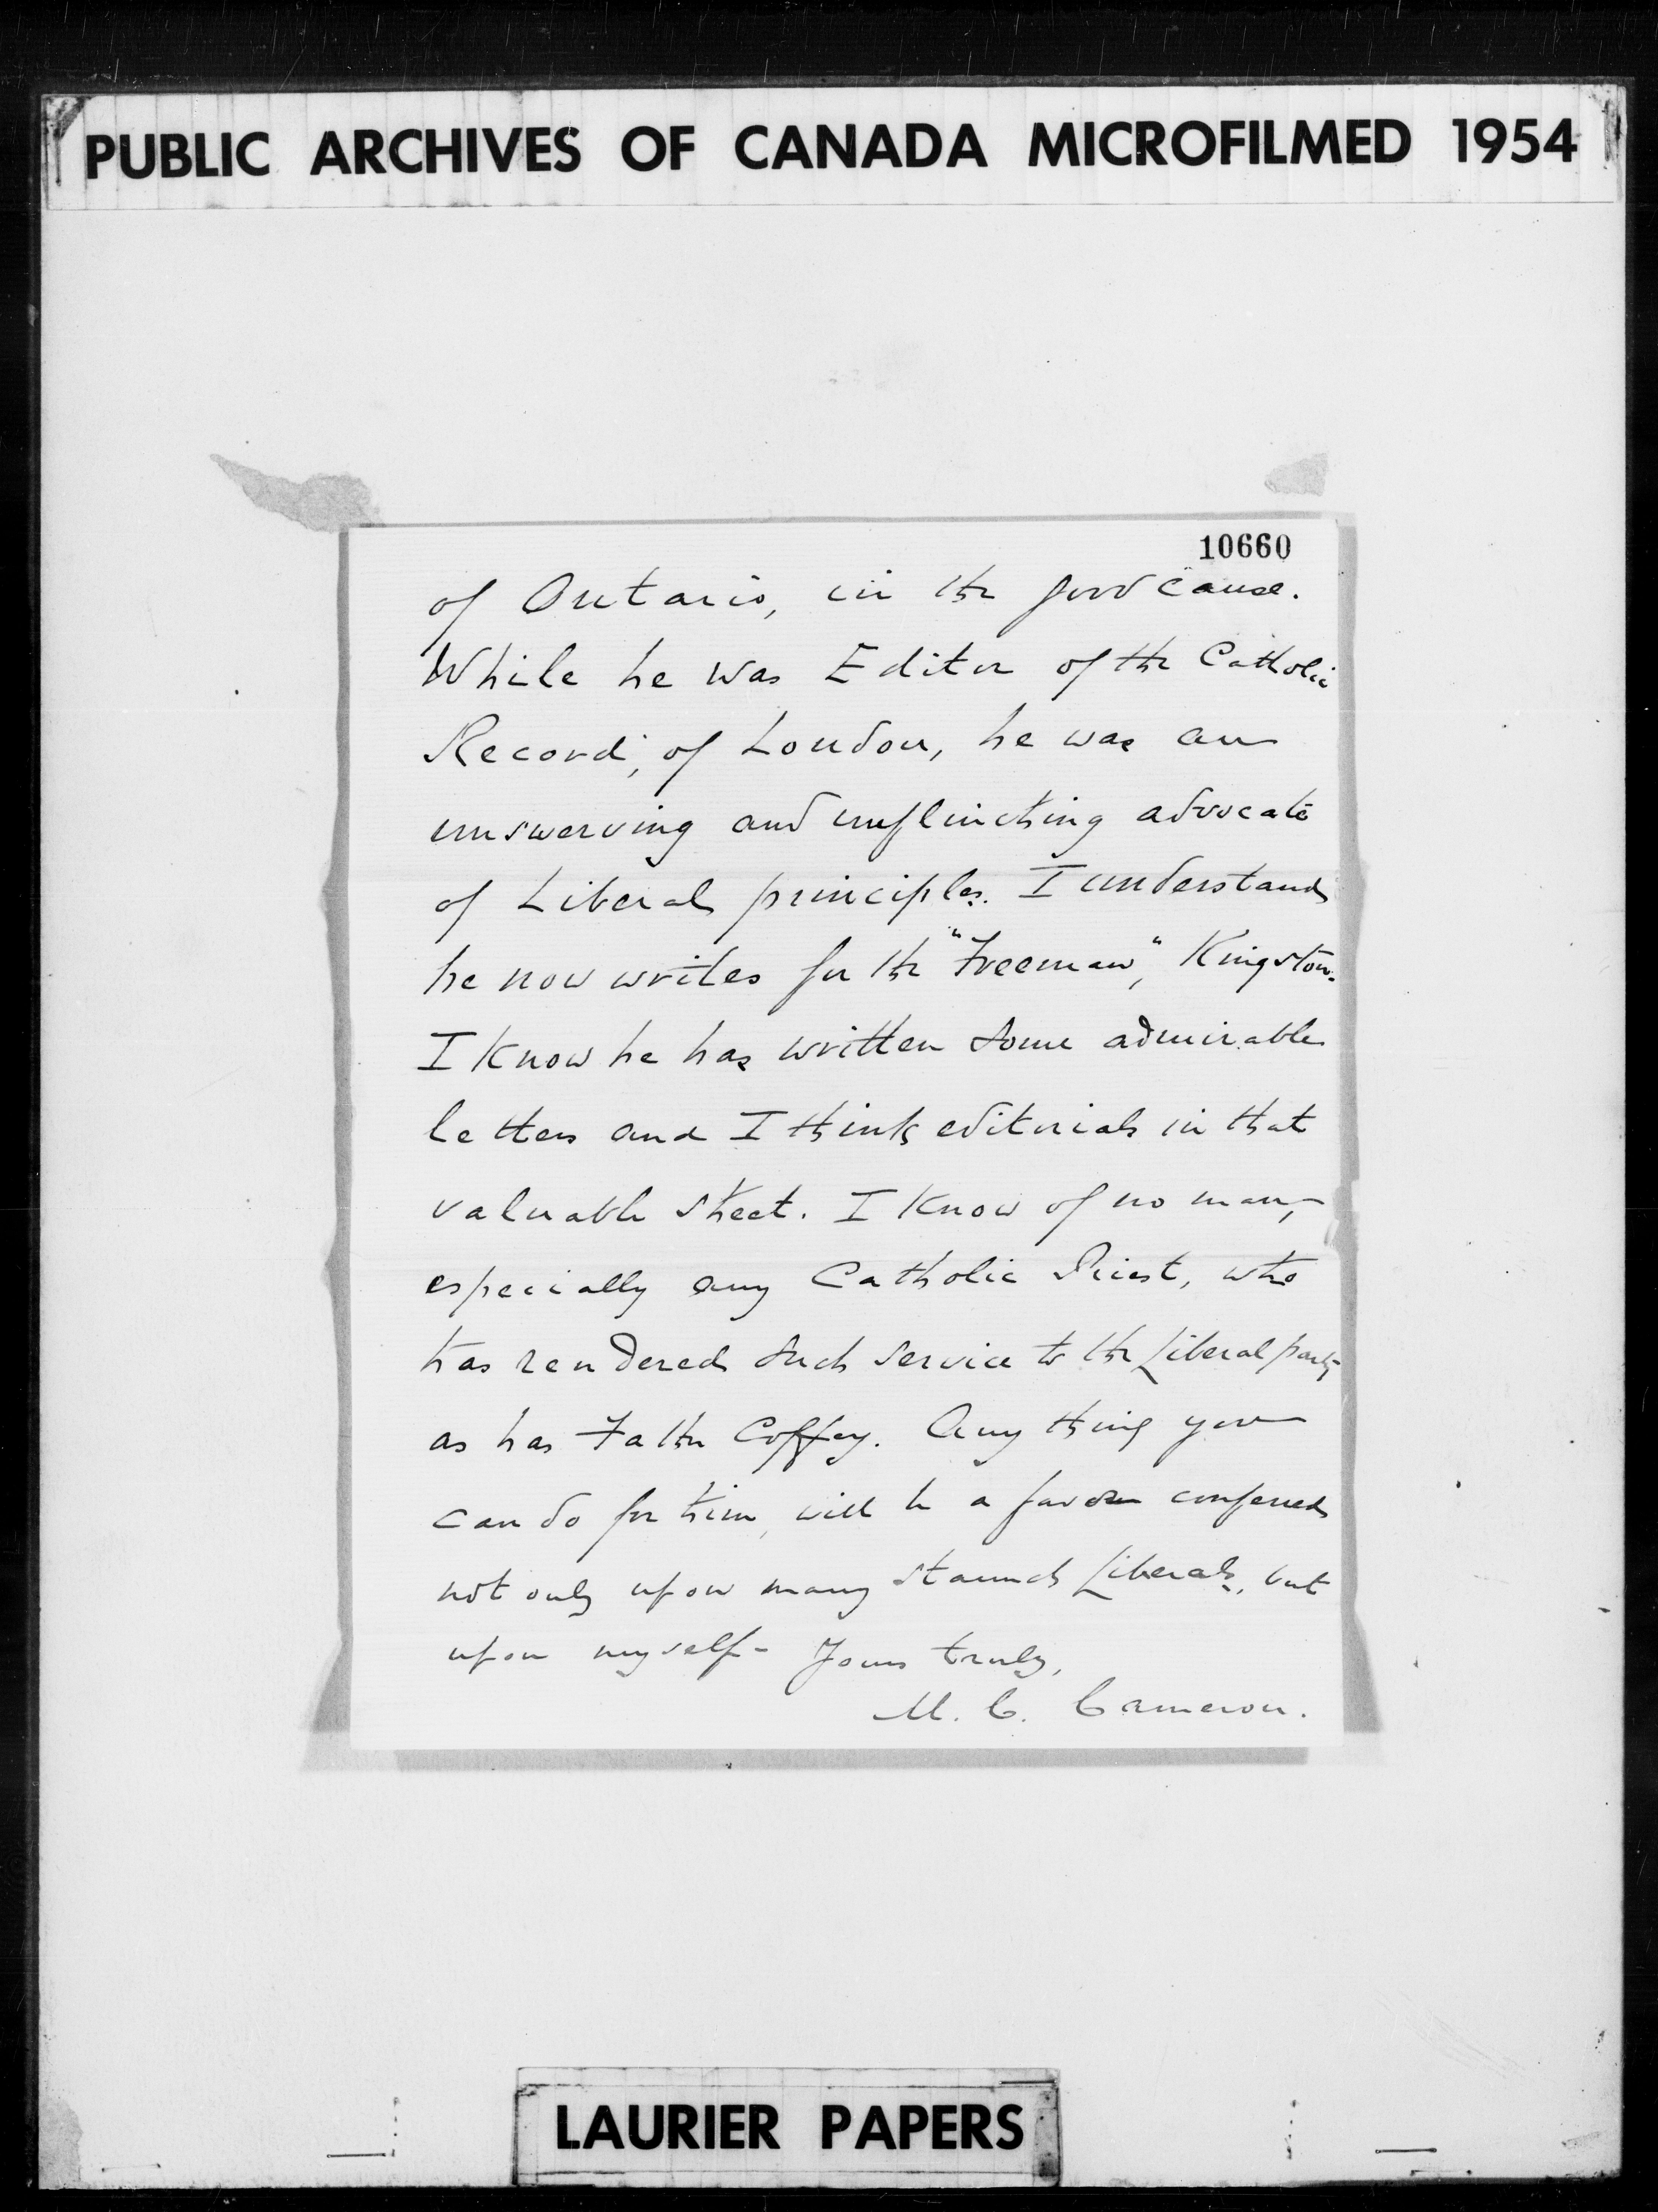 PUBLIC ARCHIVES OF CANADA MICROFILMED 1954
10660
of Ontario, in the good cause.
While he was Editor of the Catholic
Record, of London, he was an
unswerving and unflinching advocate
of Liberal principles. I understand
he now writes for the "Freeman", Kingston.
I know he has written some admirable
letters and I think editorials in that
valuable sheet. I know of no man,
especially any Catholic Priest, who
has rendered such service to the Liberal party
as has Father Coffey. Any thing you
can do for him, will be a favor conferred
not only upon many staunch Liberals, but
upon myself- Yours truly,
M. C. Cameron.
LAURIER PAPERS